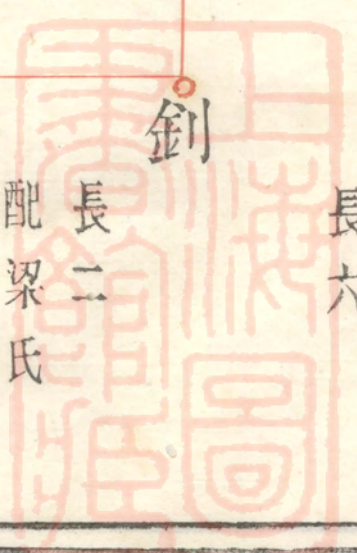 長六
釗
長二
配梁氏
上海圖
書館藏